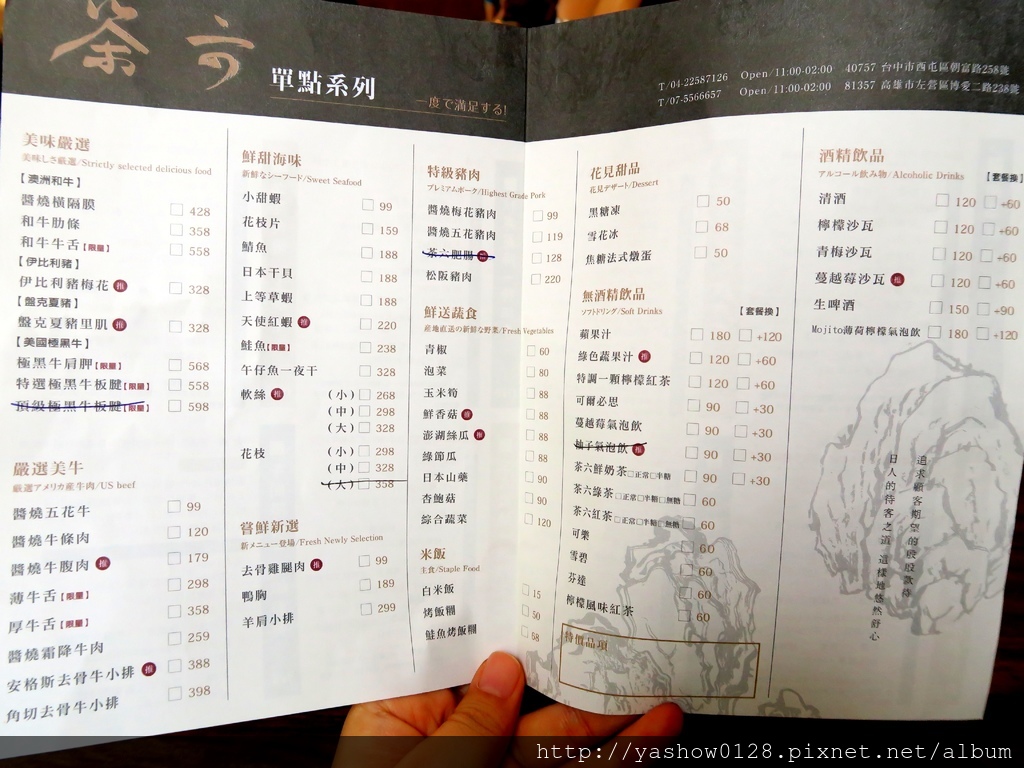 茶六
單點系列
一度で満足する!
T/04-22587126 Open/11:00-02:00 40757 台中市西屯區朝富路258號
T/07-5566657 Open/11:00-02:00 81357 高雄市左營區博愛二路238號
美味嚴選
美味しさ厳選/Strictly selected delicious food
【澳洲和牛】
醬燒橫隔膜 428
和牛肋條 358
和牛牛舌【限量】 558
【伊比利豬】
伊比利豬梅花 推 328
【盤克夏豬】
盤克夏豬里肌 推 328
【美國極黑牛】
極黑牛肩胛【限量】 568
特選極黑牛板腱【限量】 558
頂級極黑牛板腱【限量】 598
嚴選美牛
厳選アメリカ産牛肉/US beef
醬燒五花牛 99
醬燒牛條肉 120
醬燒牛腹肉 推 179
薄牛舌【限量】 298
厚牛舌【限量】 358
醬燒霜降牛肉 259
安格斯去骨牛小排 推 388
角切去骨牛小排 398
鮮甜海味
新鮮なシーフード/Sweet Seafood
小甜蝦 99
花枝片 159
鯖魚 188
日本干貝 188
上等草蝦 188
天使紅蝦 推 220
鮭魚【限量】 238
午仔魚一夜干 328
軟絲 推 (小) 268
(中) 298
(大) 328
花枝 (小) 298
(中) 328
(大) 358
嘗鮮新選
新メニュー登場/Fresh Newly Selection
去骨雞腿肉 推 99
鴨胸 189
羊肩小排 299
特級豬肉
プレミアムポーク/Highest Grade Pork
醬燒梅花豬肉 99
醬燒五花豬肉 119
茶六肥腸 128
松阪豬肉 220
鮮送蔬食
産地直送の新鮮な野菜/Fresh Vegetables
青椒 60
泡菜 80
玉米筍 88
鮮香菇 推 88
澎湖絲瓜 推 88
綠節瓜 88
日本山藥 90
杏鮑菇 90
綜合蔬菜 120
米飯
主食/Staple Food
白米飯 15
烤飯糰 50
鮭魚烤飯糰 58
花見甜品
花見デザート/Dessert
黑糖凍 50
雪花冰 68
焦糖法式燉蛋 50
無酒精飲品
ソフトドリンク/Soft Drinks 【套餐換】
蘋果汁 180 +120
綠色蔬果汁 推 120 +60
特調一顆檸檬紅茶 120 +60
可爾必思 90 +30
蔓越莓氣泡飲 90 +30
柚子氣泡飲 推 90 +30
茶六鮮奶茶 □正常□半糖 90 +30
茶六綠茶 □正常□半糖□無糖 60
茶六紅茶 □正常□半糖□無糖 60
可樂 60
雪碧 60
芬達 60
檸檬風味紅茶 60
特價品項
酒精飲品
アルコール飲み物/Alcoholic Drinks 【套餐換】
清酒 120 +60
檸檬沙瓦 120 +60
青梅沙瓦 120 +60
蔓越莓沙瓦 推 120 +60
生啤酒 150 +90
Mojito薄荷檸檬氣泡飲 180 +120
追求顧客期望的殷殷款待
日人的待客之道 這樣地悠然舒心
http://yashow0128.pixnet.net/album